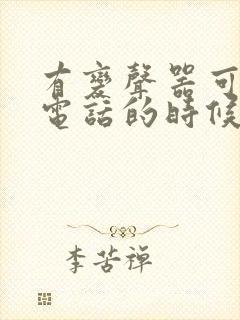 有變聲器可
電話的時候
李苦禪